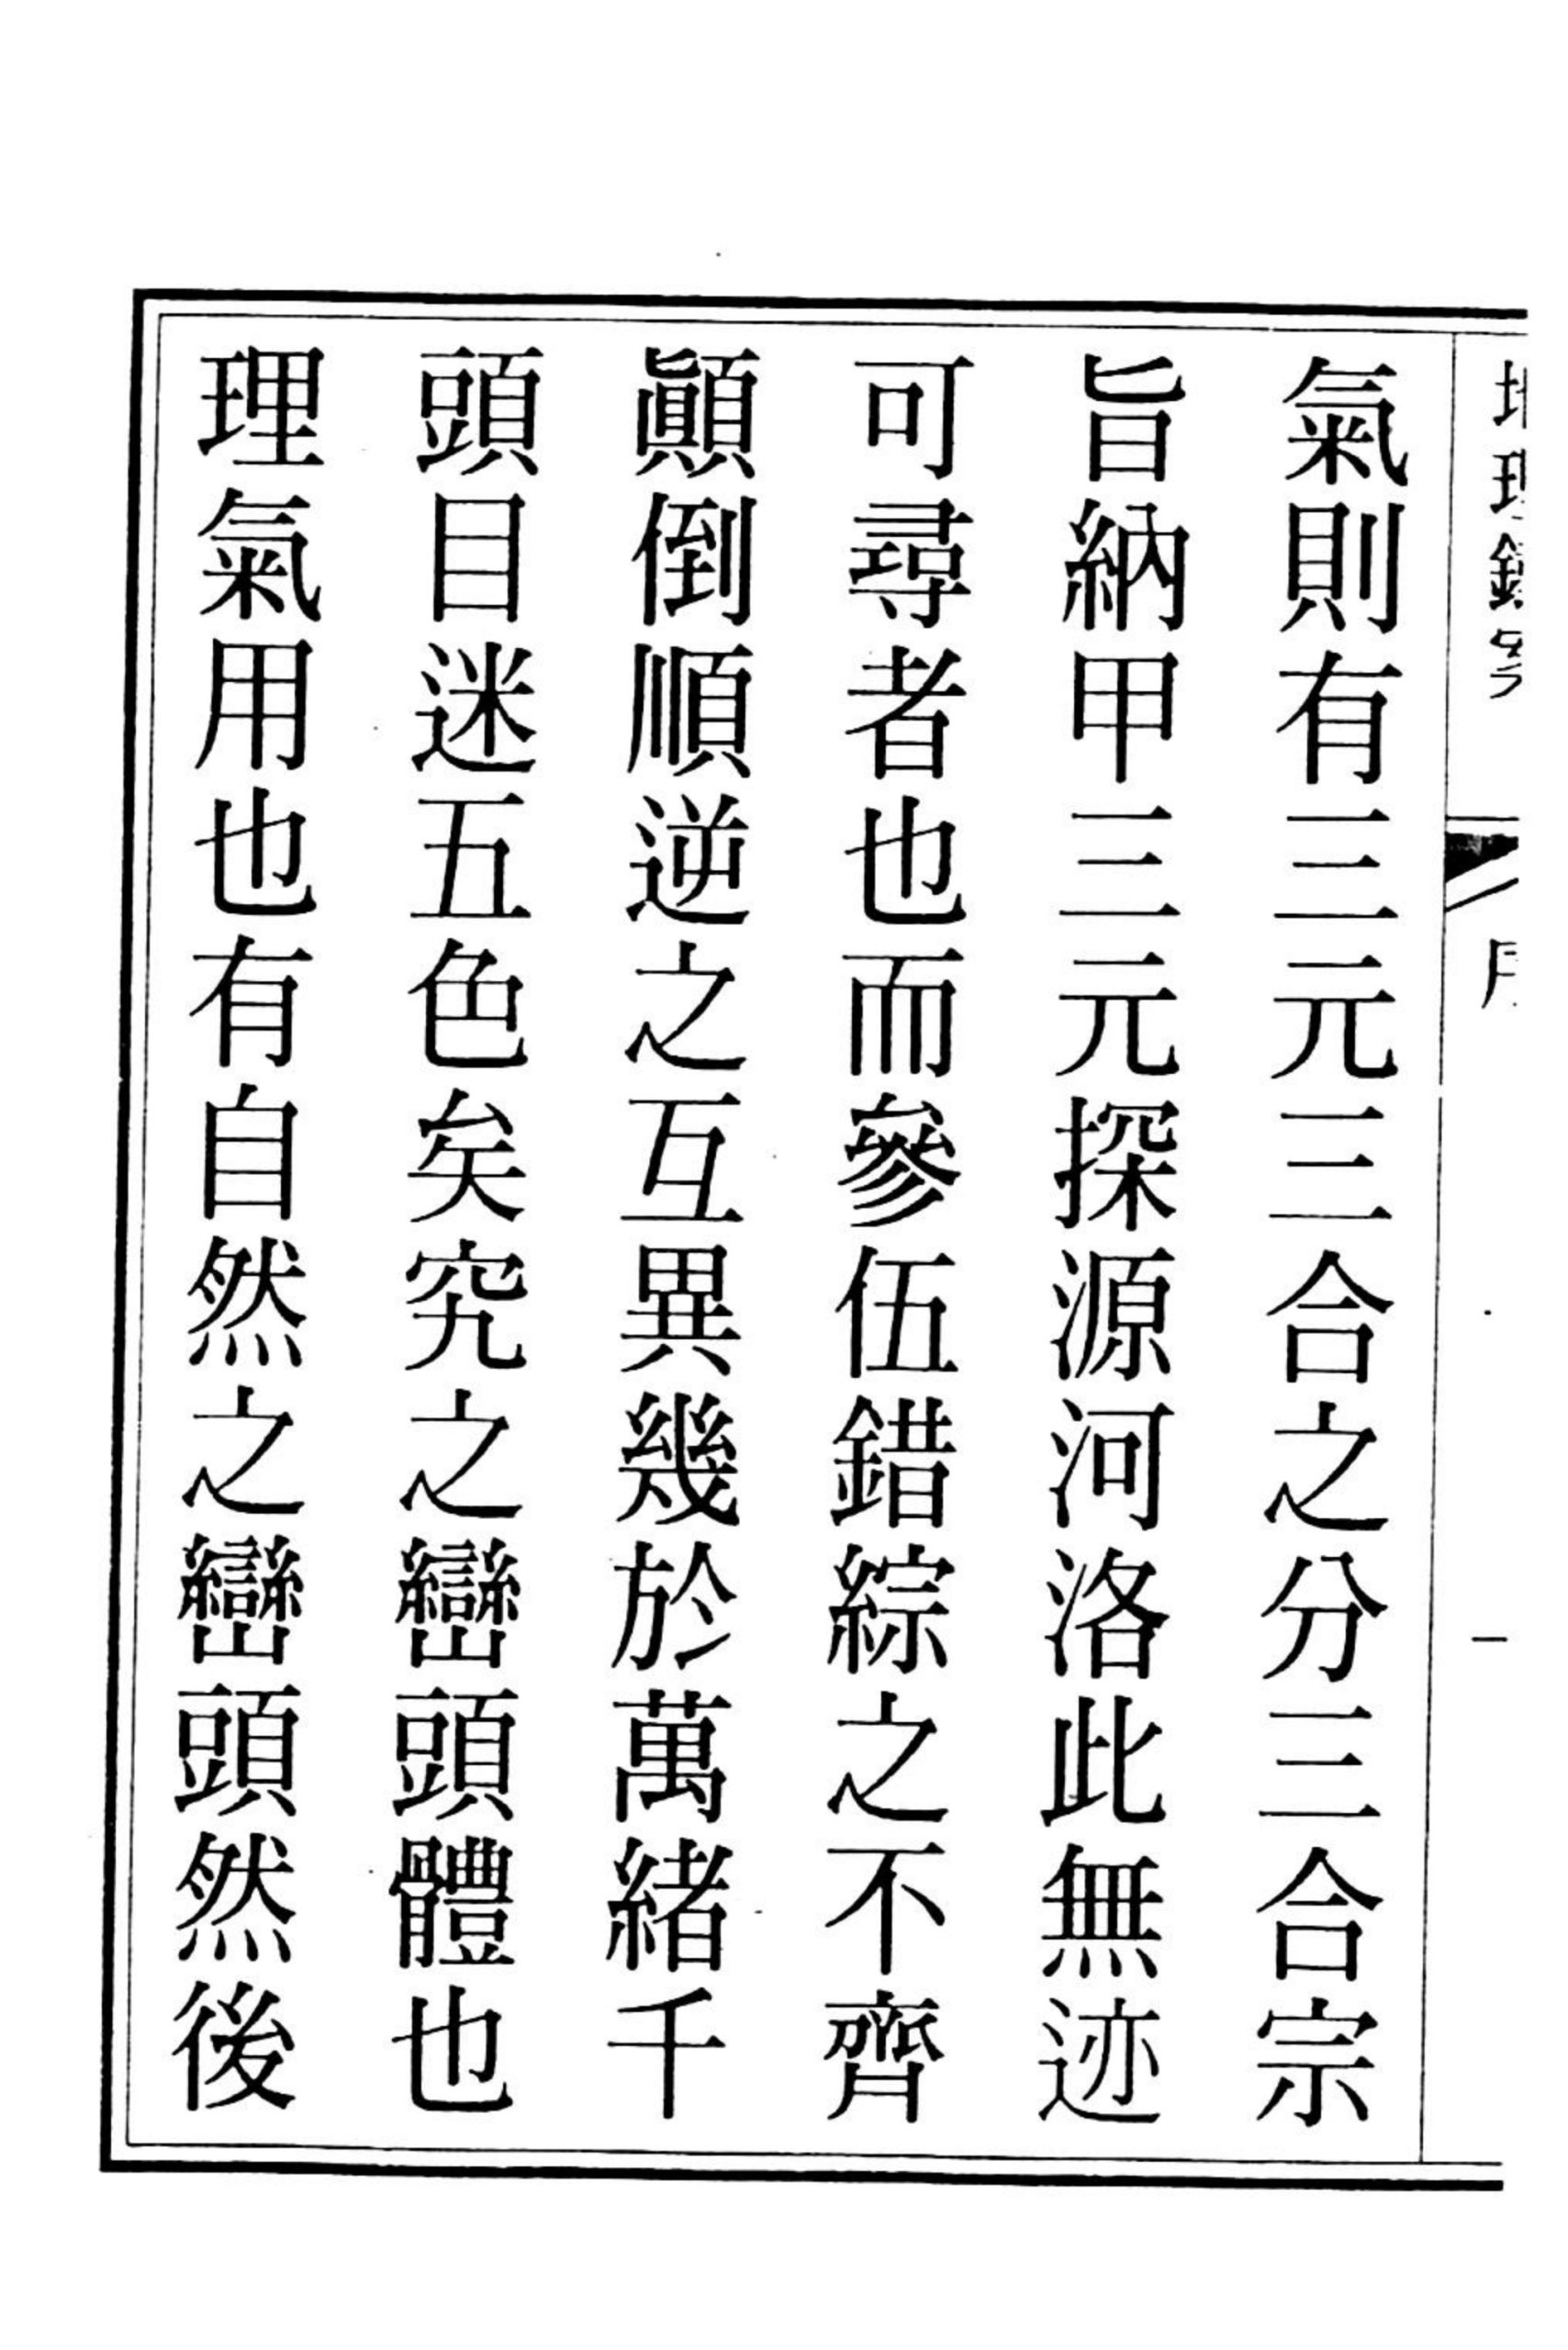 氣則有三元三合之分三合宗
旨納甲三元探源河洛此無迹
可尋者也而參伍錯綜之不齊
顚倒順逆之互異幾於萬緒千
頭目迷五色矣究之巒頭體也
理氣用也有自然之巒頭然後